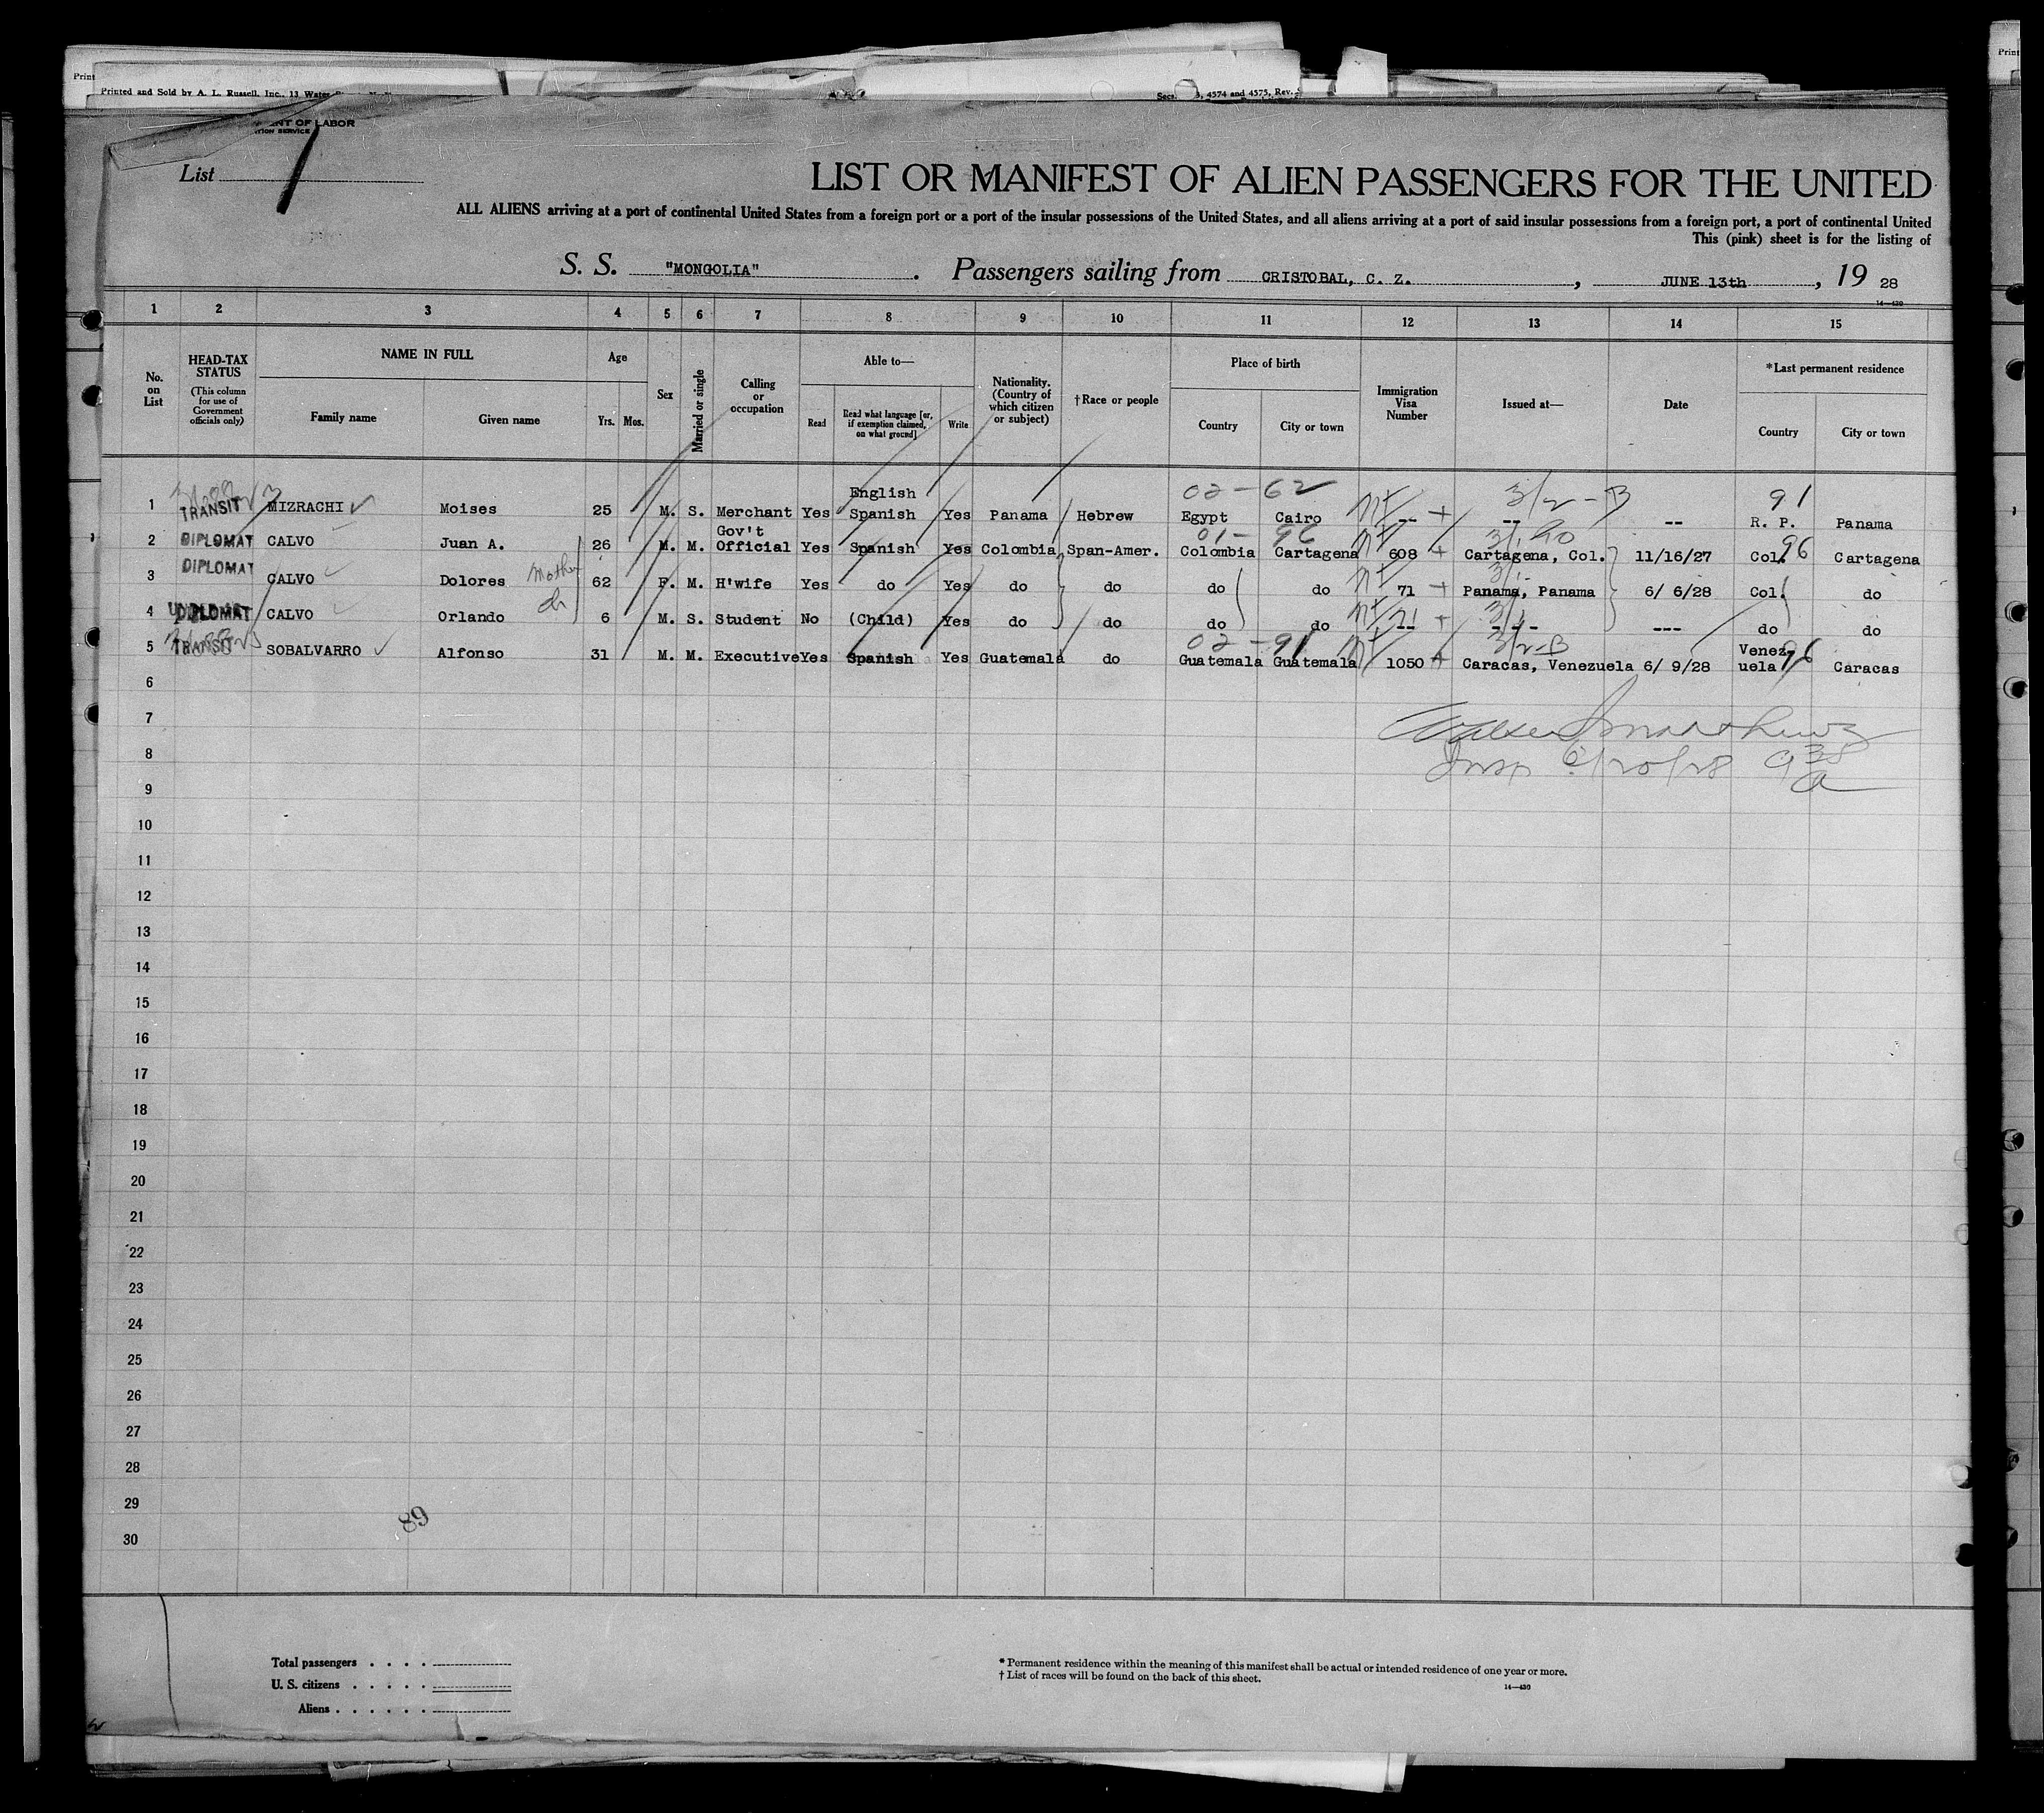 Print
Printed and Sold by A. L. Russell, Inc., 13 Water
4574 and 4575, Rev.
Print
OF LABOR
SERVICE
List 1
LIST OR MANIFEST OF ALIEN PASSENGERS FOR THE UNITED
ALL ALIENS arriving at a port of continental United States from a foreign port or a port of the insular possessions of the United States, and all aliens arriving at a port of said insular possessions from a foreign port, a port of continental United
This (pink) sheet is for the listing of
S. S. "MONGOLIA". Passengers sailing from CRISTOBAL, C. Z., JUNE 13th, 19 28
14—430
1 2 3 4 5 6 7 8 9 10 11 12 13 14 15
No. on List
HEAD-TAX STATUS
(This column for use of Government officials only)
NAME IN FULL
Family name Given name
Age
Yrs. Mos.
Sex
Married or single
Calling or occupation
Able to—
Read
Read what language [or, if exemption claimed, on what ground]
Write
Nationality. (Country of which citizen or subject)
†Race or people
Place of birth
Country City or town
Immigration Visa Number
Issued at—
Date
*Last permanent residence
Country City or town
English 02-62 3/2-B 91
1 TRANSIT MIZRACHI Moises 25 M. S. Merchant Yes Spanish Yes Panama Hebrew Egypt Cairo -- + -- -- R. P. Panama
Gov't 01-96
2 DIPLOMAT CALVO Juan A. 26 M. M. Official Yes Spanish Yes Colombia Span-Amer. Colombia Cartagena 608 + Cartagena, Col. 11/16/27 Col. 96 Cartagena
3 DIPLOMAT CALVO Dolores Mother 62 F. M. H'wife Yes do Yes do do do do 71 + Panama, Panama 6/ 6/28 Col. do
4 DIPLOMAT CALVO Orlando ch 6 M. S. Student No (Child) Yes do do do do 71 + --- --- do do
02-91 3/2-B Venez-
5 TRANSIT SOBALVARRO Alfonso 31 M. M. Executive Yes Spanish Yes Guatemala do Guatemala Guatemala 1050 + Caracas, Venezuela 6/ 9/28 uela 96 Caracas
6
7
8
Insp 6/20/28 9 35 a
9
10
11
12
13
14
15
16
17
18
19
20
21
22
23
24
25
26
27
28
29
30
89
Total passengers
U. S. citizens
Aliens
* Permanent residence within the meaning of this manifest shall be actual or intended residence of one year or more.
† List of races will be found on the back of this sheet.
14—430